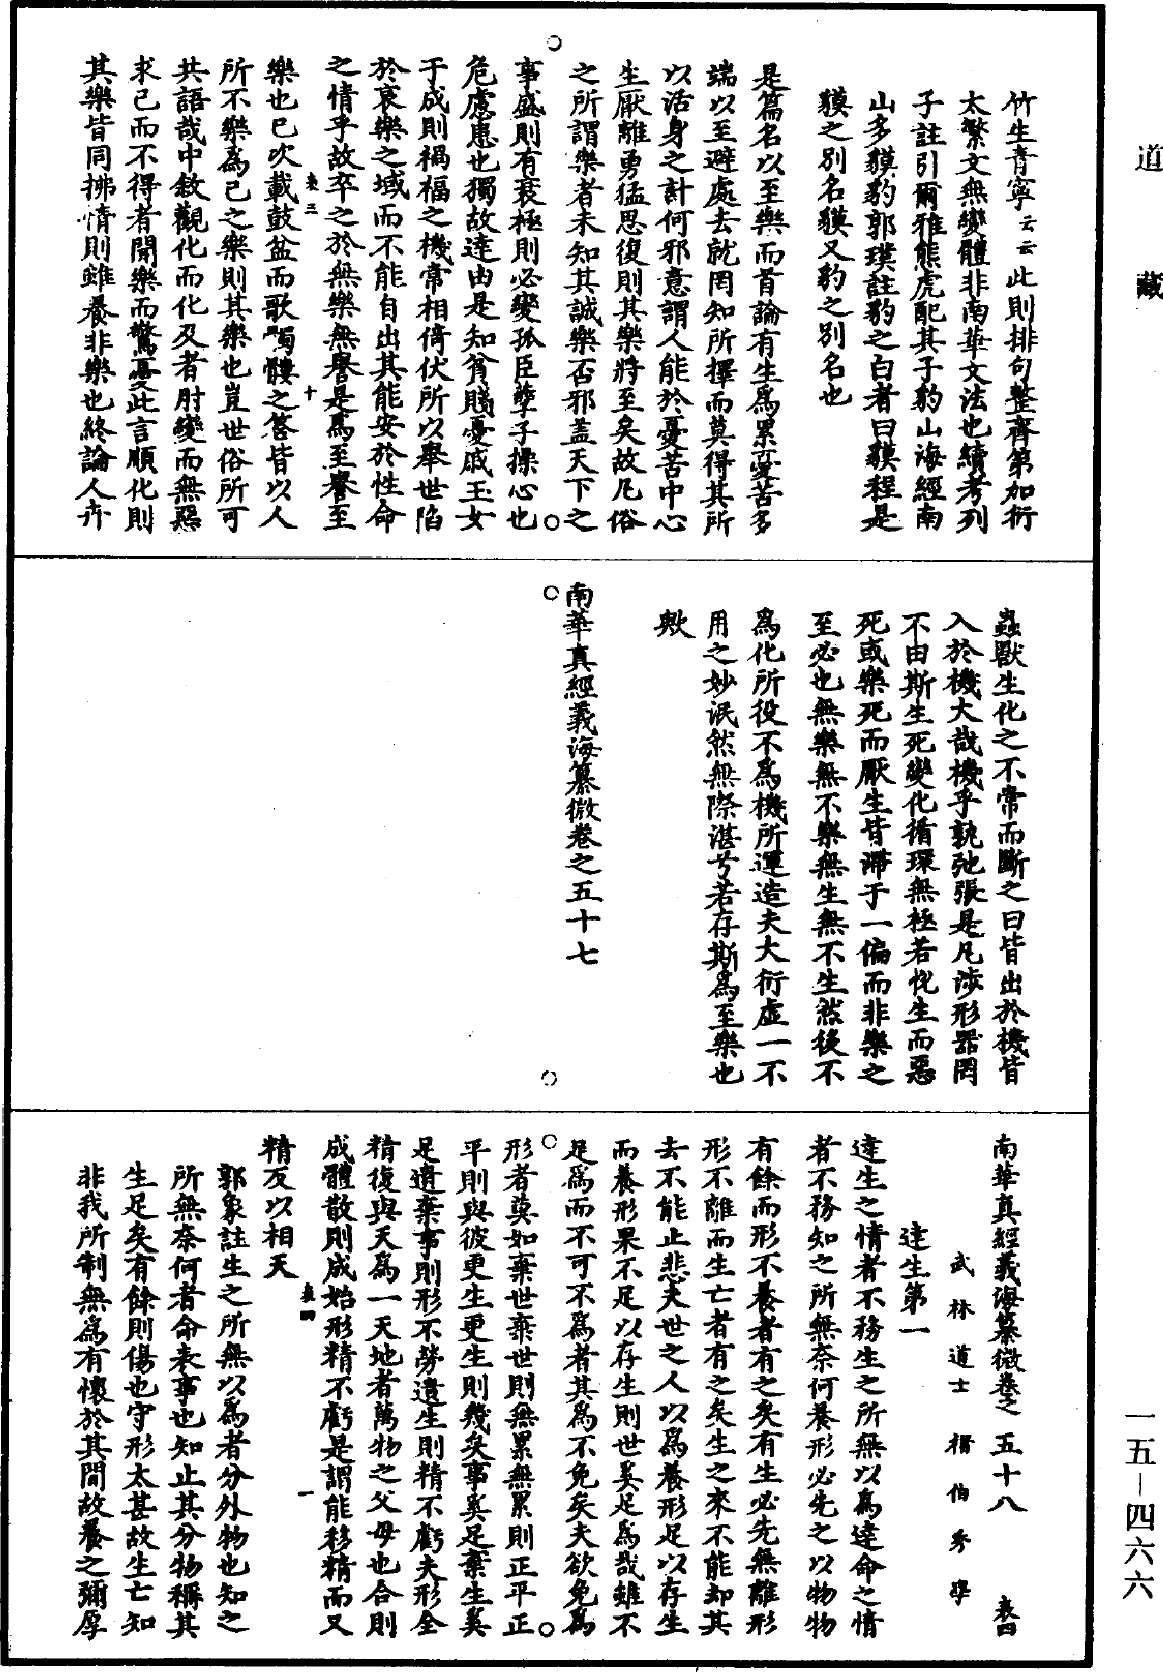 道藏
竹生青寧云云此則排句整齊第加衍
太繁文無變體非南華文法也續考列
子註引爾雅熊虎醜其子豹山海經南
山多貘豹郭璞註豹之白者曰貘程是
貘之別名貘又豹之別名也
是篇名以至樂而首論有生為累憂苦多
端以至避處去就罔知所擇而莫得其所
以活身之計何邪意謂人能於憂苦中心
生厭離勇猛思復則其樂將至矣故凡俗
之所謂樂者未知其誠樂否邪盖天下之
事盛則有衰極則必變孤臣孽子操心也
危慮患也獨故達由是知貧賤憂戚玉女
于成則禍福之機常相倚伏所以舉世陷
於哀樂之域而不能自出其能安於性命
之情乎故卒之於無樂無譽是為至譽至
表三 十
樂也已次載鼓盆而歌髑髏之答皆以人
所不樂為己之樂則其樂也豈世俗所可
共語哉中敘觀化而化及者肘變而無惡
求己而不得者聞樂而驚憂此言順化則
其樂皆同拂情則雖養非樂也終論人卉
蟲獸生化之不常而斷之曰皆出於機皆
入於機大哉機乎孰弛張是凡涉形器罔
不由斯生死變化循環無極若恱生而惡
死或樂死而厭生皆滯于一偏而非樂之
至必也無樂無不樂無生無不生然後不
為化所役不為機所運造夫大衍虛一不
用之妙泯然無際湛兮若存斯為至樂也
歟
南華真經義海纂微卷之五十七
南華真經義海纂微卷之五十八 表四
武林道士褚伯秀學
達生第一
達生之情者不務生之所無以為達命之情
者不務知之所無奈何養形必先之以物物
有餘而形不養者有之矣有生必先無離形
形不離而生亡者有之矣生之來不能却其
去不能止悲夫世之人以為養形足以存生
而養形果不足以存生則世奚足為哉雖不
足為而不可不為者其為不免矣夫欲免為
形者莫如棄世棄世則無累無累則正平正
平則與彼更生更生則幾矣事奚足棄生奚
足遺棄事則形不勞遺生則精不虧夫形全
精復與天為一天地者萬物之父母也合則
成體散則成始形精不虧是謂能移精而又
表四 一
精反以相天
郭象註生之所無以為者分外物也知之
所無奈何者命表事也知止其分物稱其
生足矣有餘則傷也守形太甚故生亡知
非我所制無為有懷於其間故養之彌厚
一五－四六六